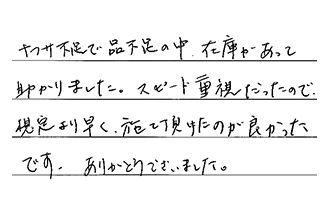 ナフサ不足で品不足の中、在庫があって
助かりました。スピード重視だったので、
規定より早く、頂けたのが良かった
です。ありがとうございました。